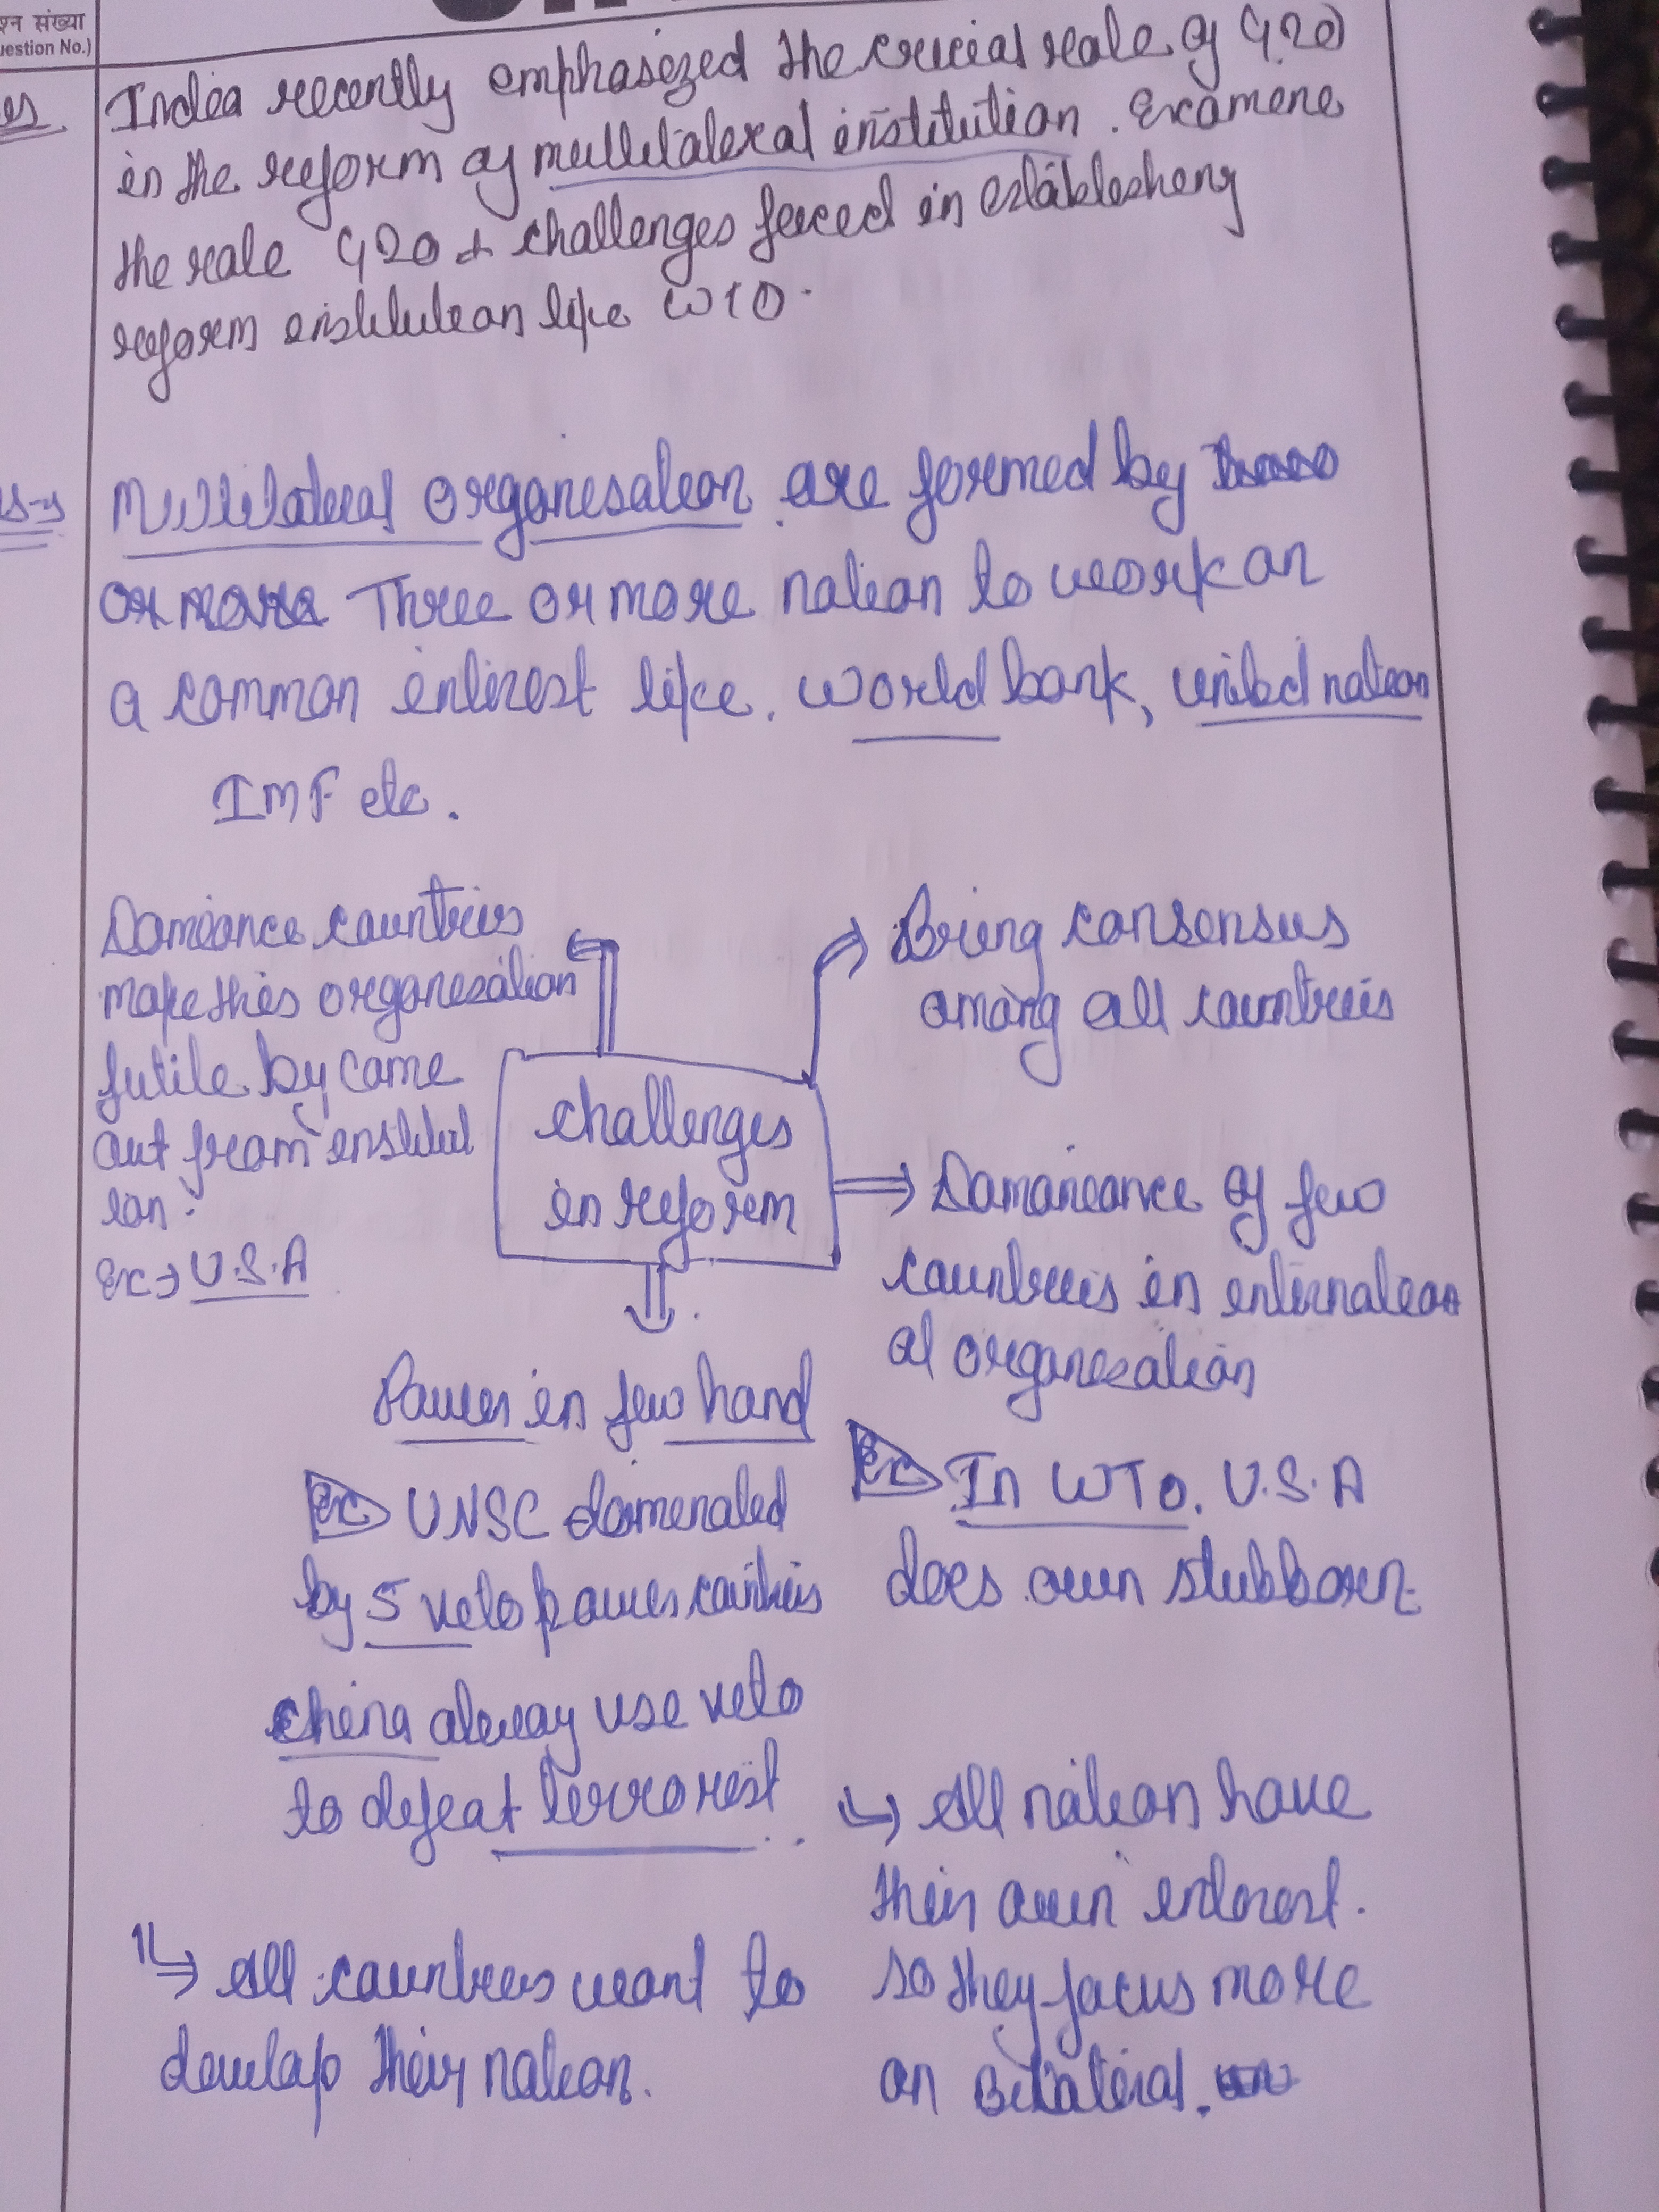 श्न संख्या
uestion No.)
es India recently emphasized the crucial role of G20
in the reform of multilateral institution. Examine
the role G20 & challenges faced in establishing
reform institution like WTO.
Multilateral organisation are formed by
or more Three or more nation to work on
a common interest like. World bank, united nation
IMF etc.
Domiance countries
make this organization
futile by come
out from institut
ion.
Ex→ U.S.A
Bring consensus
among all countries
challenges
in reform
Dominance of few
countries in internation
al organization
Ex In WTO. U.S.A
does own stubborn.
Power in few hand
Ex UNSC dominated
by 5 veto power countries
China alway use veto
to defeat terrorist
↳ All nation have
their own interest.
so they focus more
on Bilateral.
↳ All countries want to
develop their nation.